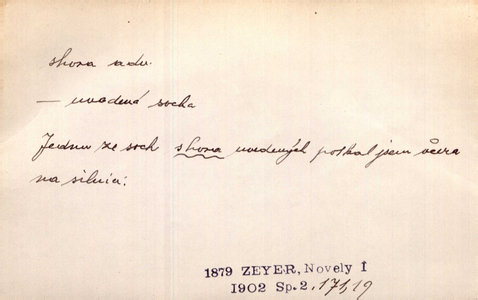 shora adv.
— uvedená socha
Jednu ze soch shora uvedených potkal jsem včera
na silnici:
1879 ZEYER, Novely I
1902 Sp. 2. 171,19